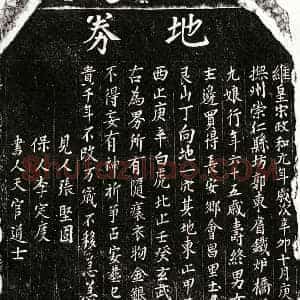 地券
維皇宋政和元年歲次辛卯十月庚
撫州崇仁縣坊郭東耆鐵爐橋
九娘行年六十五歲壽終男
主邊買得安鄉會昌里
艮山丁向地一穴其地東止甲
西止庚辛白虎北止壬癸玄武
古為界所有隨葬衣物金銀
不得妄有安墓已
貴千年不改万歲不移急急
見人張堅固
保人李定度
書人天官道士